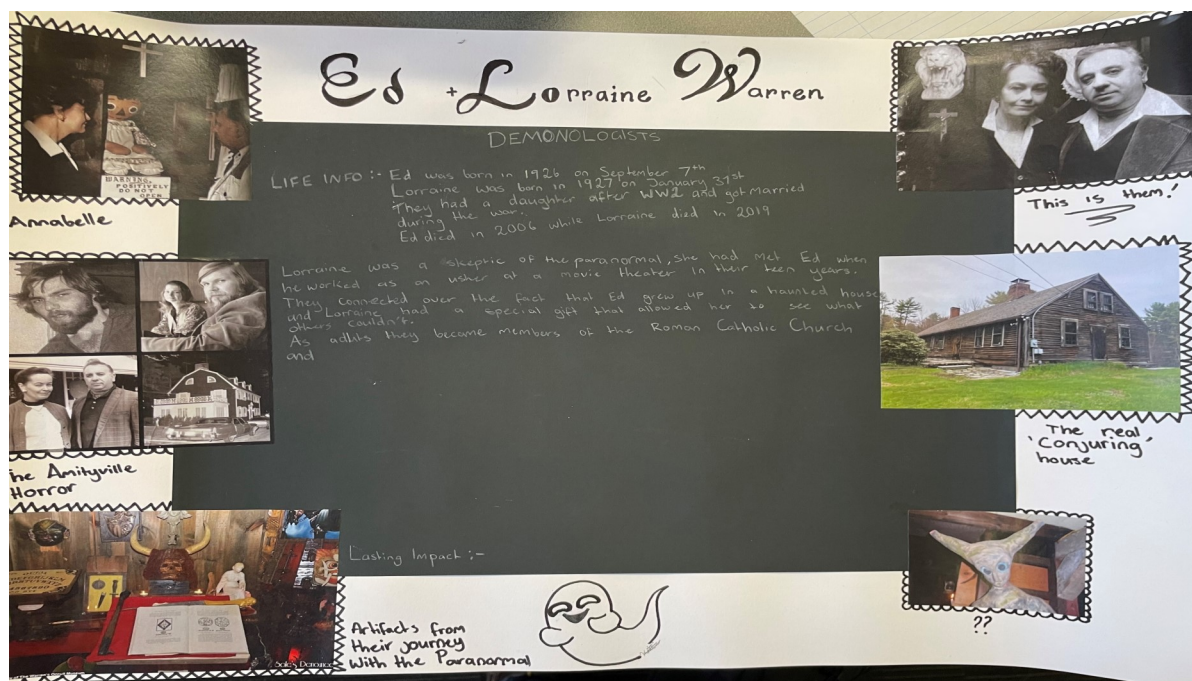 Ed + Lorraine Warren
DEMONOLOGISTS
LIFE INFO :- Ed was born in 1926 on September 7th
Lorraine was born in 1927 on January 31st
They had a daughter after WW2 and got married
during the war.
Ed died in 2006 while Lorraine died in 2019
Lorraine was a skeptic of the paranormal, she had met Ed when
he worked as an usher at a movie theater in their teen years.
They connected over the fact that Ed grew up in a haunted house
and Lorraine had a special gift that allowed her to see what
others couldn't.
As adlts they became members of the Roman Catholic Church
and
Lasting Impact :-
WARNING,
POSITIVELY
DO NOT
OPEN
Annabelle
he Amityville
Horror
Artifacts from
their journey
with the Paranormal
This is them!
The real
'Conjuring'
house
??